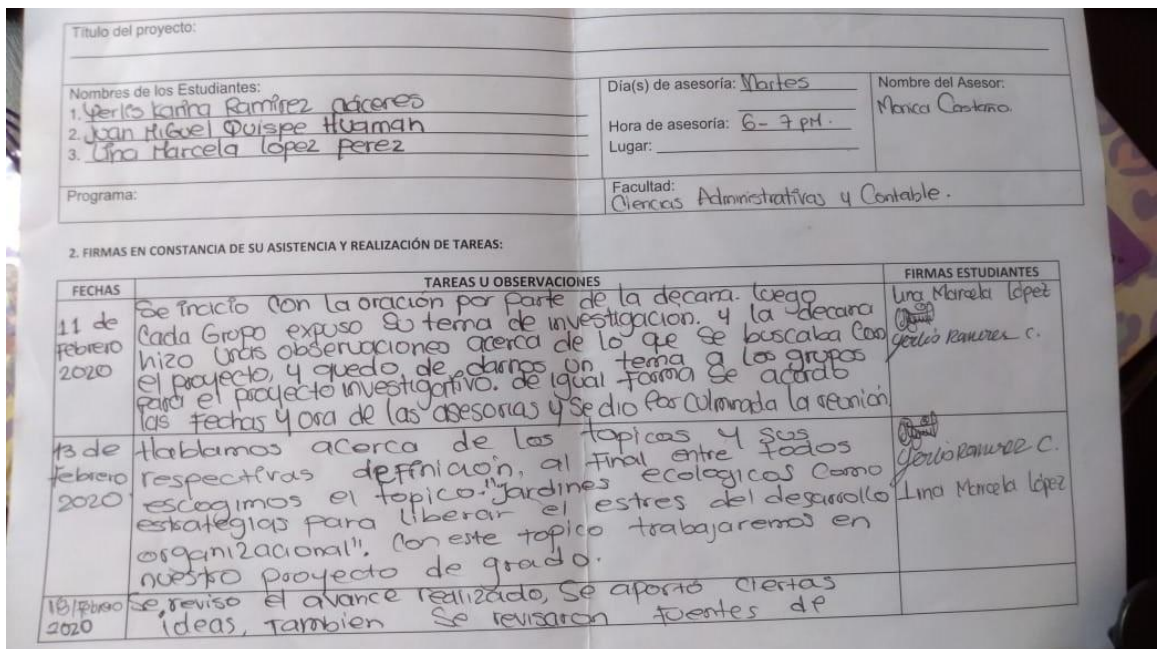 Título del proyecto:
Nombres de los Estudiantes:
1. Yerlis Karina Ramirez Cáceres
2. Juan Miguel Quispe Huaman
3. Lina Marcela López Perez
Día(s) de asesoría: Martes
Hora de asesoría: 6-7 pM.
Lugar:
Nombre del Asesor:
Monica Castano.
Programa:
Facultad:
Ciencias Administrativas y Contable.
2. FIRMAS EN CONSTANCIA DE SU ASISTENCIA Y REALIZACIÓN DE TAREAS:
FECHAS
TAREAS U OBSERVACIONES
FIRMAS ESTUDIANTES
11 de
Febrero
2020
Se inicio con la oración por parte de la decana. luego
Cada Grupo expuso su tema de investigacion. y la decana
hizo unas observaciones acerca de lo que se buscaba con
el proyecto, y quedo de darnos un tema a los grupos
para el proyecto investigativo. de igual forma se acordó
las fechas y ora de las asesorias y se dio por culminada la reunión
Lina Marcela López
Yerlis Ramirez C.
13 de
Febrero
2020
Hablamos acerca de los topicos y sus
respectivas definicion, al final entre todos
escogimos el topico "Jardines ecologicos como
estrategias para liberar el estres del desarrollo
organizacional". Con este topico trabajaremos en
nuestro proyecto de grado.
Yerlis Ramirez C.
Lina Marcela López
18/Febrero
2020
Se reviso el avance realizado, Se aportó ciertas
ideas, Tambien se revisaron fuentes de